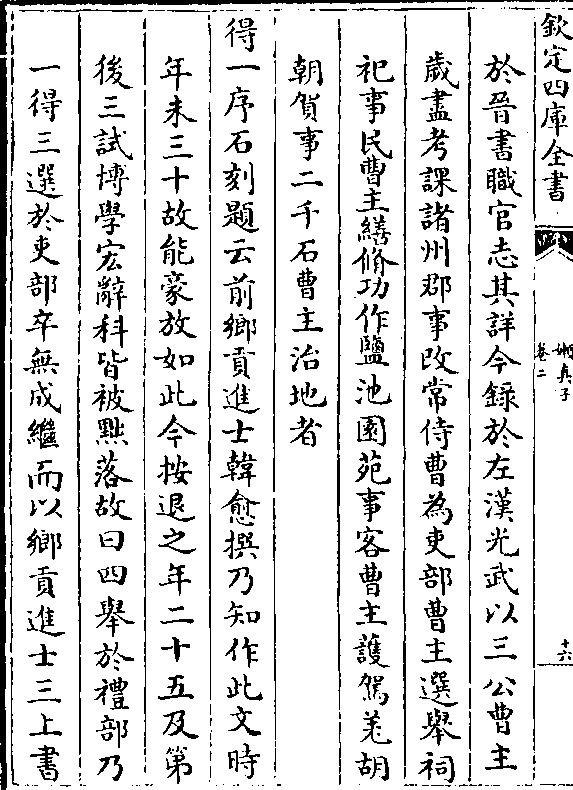 欽定四庫全書
嬾真子
卷二
十六
於晉書職官志其詳今錄於左漢光武以三公曹主
歲盡考課諸州郡事改常侍曹為吏部曹主選舉祠
祀事民曹主繕脩功作鹽池園苑事客曹主護駕羌胡
朝賀事二千石曹主治地者
得一序石刻題云前鄉貢進士韓愈撰乃知作此文時
年未三十故能豪放如此今按退之年二十五及第
後三試博學宏辭科皆被黜落故曰四舉於禮部乃
一得三選於吏部卒無成繼而以鄉貢進士三上書